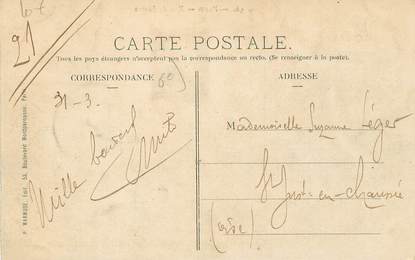 21
CARTE POSTALE.
Tous les pays étrangers n'acceptent pas la correspondance au recto. (Se renseigner à la poste).
CORRESPONDANCE
ADRESSE
31-3.
Mille
Mademoiselle Suzanne Léger
St Just-en-Chaussée
(Oise)